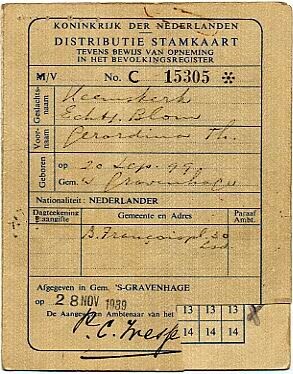 KONINKRIJK DER NEDERLANDEN
DISTRIBUTIE STAMKAART
TEVENS BEWIJS VAN OPNEMING
IN HET BEVOLKINGSREGISTER
M/V No. C 15305 *
Geslachts-naam Heemskerk
Echtg. Blom
Voor-naam Gerardina Th.
Geboren op 20 Sep. 99.
Gem. 's Gravenhage
Nationaliteit: NEDERLANDER
Dagteekening v. aangifte Gemeente en Adres Paraaf Ambt.
B. Françoispl. 20
Afgegeven in Gem. 'S-GRAVENHAGE
op 28 NOV 1939 13 13 13
De Aangewezen Ambtenaar van het 14 14 14